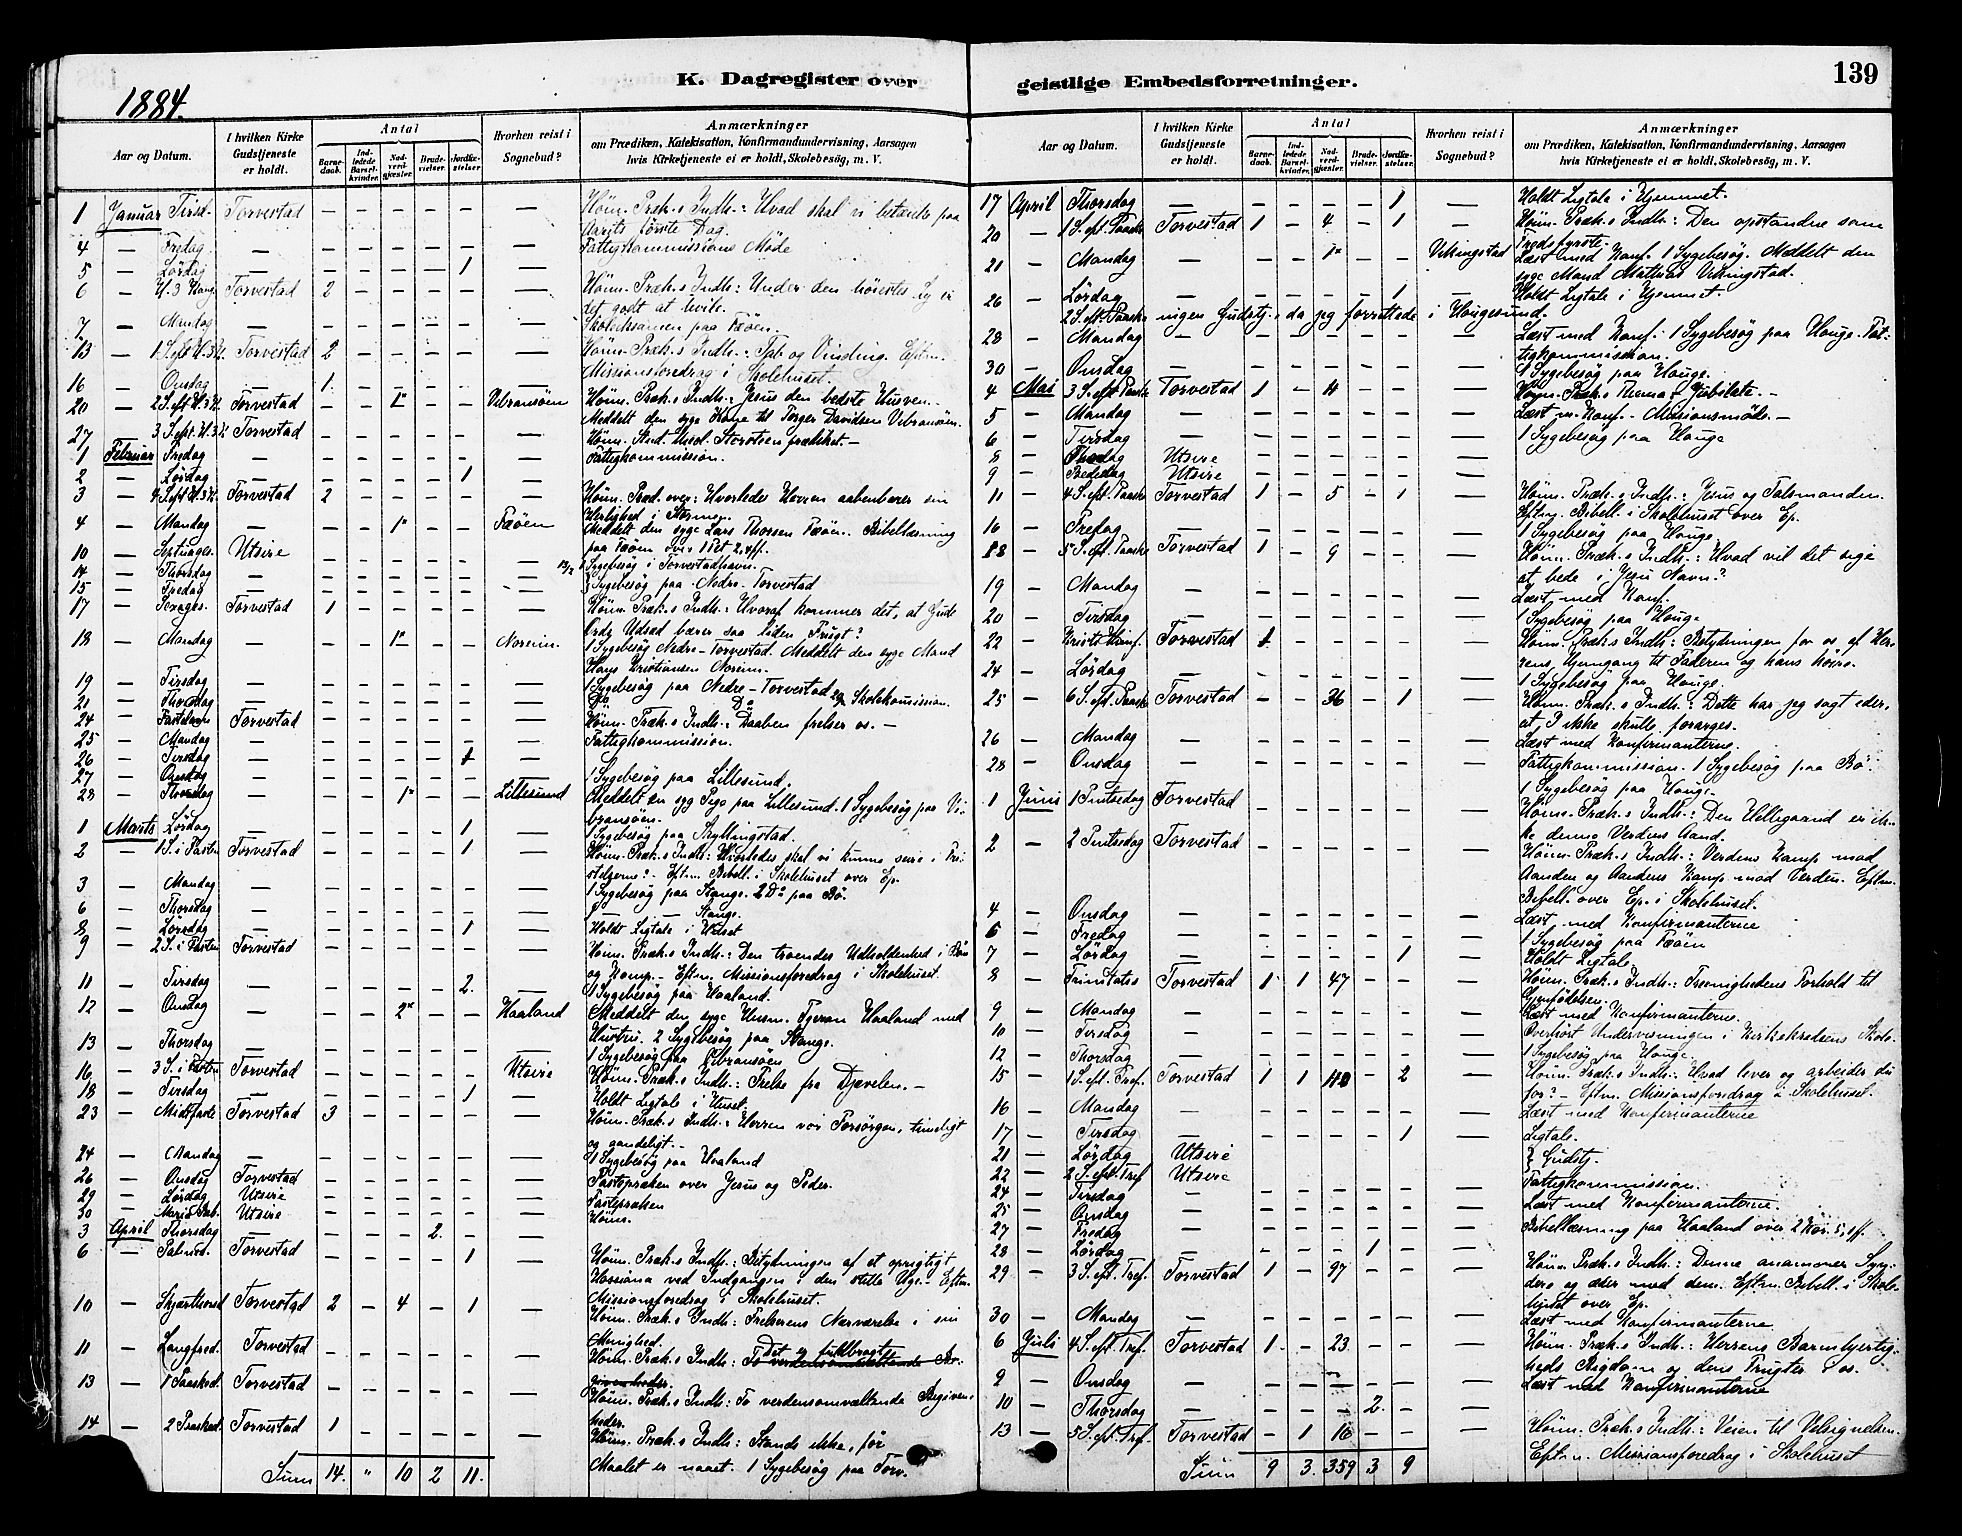 1884.
K. Dagregister over
Aar og Datum. I hvilken Kirke Gudstjeneste er holdt. Antal Barnedaab. Indledede Barselkvinder. Nadverdgjæster. Brudevielser. Jordfæstelser. Hvorhen reist i Sognebud? Anmærkninger
om Prædiken, Katekisation, Konfirmandundervisning, Aarsagen
hvis Kirketjeneste ei er holdt, Skolebesög, m. V.
1 Januar Tirsd. Torvestad — — — — — — Höim. Præk.s Indh.: Hvad skal vi betænke paa
Aarets første Dag.
4 — Fredag — — — — — — — Fattigkommissions Møde
5 — Lørdag — — — — — 1 —
6 — H. 3 Kong. Torvestad 2 — — — — — Höim. Præk.s Indh.: Under den höiestes Ly er
det godt at hvile.
7 — Mandag — — — — — — — Skoleexamen paa Fæöen.
13 — 1 S. eft H.3K. Torvestad 2 — — — — — Höim. Præk.s Indh.: Tab og Vinding. Eftm.
Missionsforedrag i Skolehuset.
16 — Onsdag — 1 — — — — —
20 — 2 S. eft H.3K. Torvestad — — 1 — — Vibransöen Höim. Præk.s Indh.: Jesus den bedste Husven.
Meddelt den syge Kone til Torger Davidsen Vibransöen.
27 — 3 S. eft. H.3K. Torvestad — — — — — — Höim. Stud. theol. Storsteen prækket. —
1 Februar Fredag — — — — — — — Fattigkommission.
2 — Lørdag — — — — — 1 —
3 — 4 S. eft H.3K. Torvestad 2 — — — — — Höim. Præd. over: Hvorledes Herren aabenbarer sin
Herlighed i Stormen.
4 — Mandag — — — 1 — — Fæöen Meddelt den syge Lars Thorsen Fæöen. Bibellæsning
paa Fæöen over 1 Pet 2, 4ff.
10 — Septuages. Utsire — — — — — — 13/2 1 Sygebesög i Torvestadhavn.
14 — Thorsdag — — — — — — —
15 — Fredag — — — — — — — } Sygebesög paa Nedre-Torvestad
17 — Sexages. Torvestad 1 — — — — — Höim. Præk.s Indh.: Hvoraf kommer det, at Guds
Ords Udsæd bærer saa liden Frugt?
18 — Mandag — — — 1 — — Noreim. 1 Sygebesög Nedre-Torvestad. Meddelt den syge Mand
Hans Kristiansen Noreim.
19 — Tirsdag — — — — — — — 1 Sygebesög paa Nedre-Torvestad
21 — Thorsdag — — — — — — — Do Do og Skolekomission.
24 — Fastelavn Torvestad — — — — — — Höim. Præk.s Indh.: Daaben frelser os. —
25 — Mandag — — — — — — — Fattigkommission.
26 — Tirsdag — — — — — 1 —
27 — Onsdag — — — — — — — 1 Sygebesög paa Lillesund.
28 — Thorsdag — — — 1 — — Lillesund Meddelt en syg Pige paa Lillesund. 1 Sygebesög paa Vi-
bransöen.
1 Marts Lørdag — — — — — 1 — 1 Sygebesög paa Skyllingstad.
2 — 1 S. i Fasten Torvestad — — — — 1 — Höim. Præk.s Indh.: Hvorledes skal vi kunne seire i Fri-
stelserne? — Eftm. Bibell. i Skolehuset over Ep.
3 — Mandag — — — — — — — 1 Sygebesög paa Stange. 2 Do paa Bö.
6 — Thorsdag — — — — — — — 1 — — Stange.
8 — Lørsdag — — — — — 1 — Holdt Ligtale i Huset
9 — 2 S. i Fasten Torvestad — — — — — — Höim. Præk.s Indh.: Den troendes Udholdenhed i Bön
og Kamp. — Eftm. Missionsforedrag i Skolehuset.
11 — Tirsdag — — — — — 2. — 1 Sygebesög paa Haaland.
12 — Onsdag — — — 2 — — Haaland Meddelt den syge Husm. Haaland med
Hustru. 2 Sygebesög paa Stange.
13 — Thorsdag — — — — — — — 1 Sygebesög paa Vibransöen
16 — 3 S. i Fasten Torvestad — — — — — Utsire Höim. Præk.s Indh.: Frelse fra Djævelen. —
18 — Tirsdag — — — — — 1 — Holdt Ligtale i Huset.
23 — Midtfaste Torvestad 3 — — — — — Höim. Præk.s Indh.: Herren vor Forsörger, timeligt
og aandeligt. —
24 — Mandag — — — — — — — 1 Sygebesög paa Haaland
26 — Onsdag Torvestad — — — — — — Fastepræken over Jesus og Peder.
29 — Lørdag Utsire — — — — — — Fastepræken
30 — Mariæ Beb. Utsire — — — — — — Höim.
3 April Thorsdag — — — — 2. — —
6 — Palmes. Torvestad — — — — 1 — Höim. Præk.s Indh.: Betydningen af et oprigtigt
Hosianna ved Indgangen i den stille Uge. — Eftm.
Missionsforedrag i Skolehuset.
10 — Skjærthorsd Torvestad 2 — 4 — 1 — Höim. Præk.s Indh.: Frelserens Nærværelse i sin
Menighed.
11 — Langfred. Torvestad — — — — — — Höim. Præk.s Indh.: Det er fuldbragt. To verdensomvæltende Be-
givenheder.
13 — 1 Paasked. Torvestad — — — — — — Höim. Præk.s Indh.: To verdensomvæltende Begiven-
heder.
14 — 2 Paasked. Torvestad 1 — — — — — Höim. Præk.s Indh.: Stands ikke, før
Maalet er naaet. 1 Sygebesög paa Torv.
Sum 14. " 10 2 11.
geistlige Embedsforretninger. 139
Aar og Datum. I hvilken Kirke Gudstjeneste er holdt. Antal Barnedaab. Indledede Barselkvinder. Nadverdgjæster. Brudevielser. Jordfæstelser. Hvorhen reist i Sognebud? Anmærkninger
om Prædiken, Katekisation, Konfirmandundervisning, Aarsagen
hvis Kirketjeneste ei er holdt, Skolebesög, m. V.
17 April Thorsdag — — — — — 1 — Holdt Ligtale i Hjemmet.
20 — 1 S. eft. Paask Torvestad 1 — 4 — 1 — Höim. Præk.s Indh.: Den opstandne som
Fredsfyrste.
21 — Mandag — — — 1 — — Vikingstad Læst med Konf. 1 Sygebesög. Meddelt den
syge Mand Mathias Vikingstad.
26 — Lørdag — — — — — 1 — Holdt Ligtale i Hjemmet.
2 S. eft. Paask. ingen Gudstj. da jeg forrettede i Haugesund.
28 — Mandag — — — — — — — Læst med Konf. 1 Sygebesög paa Hauge. Fat-
tigkommission.
30 — Onsdag — — — — — — — 1 Sygebesög paa Hauge.
4 Mai 3 S. eft. Paask Torvestad 1 — 4 — — — Höim. Præk.s Thema: Jubilate. —
5 — Mandag — — — — — — — Læst m. Konf. — Missionsmöde. —
6 — Tirsdag — — — — — — — 1 Sygebesög paa Hauge
8 — Thorsdag Utsire — — — — — —
9 — Bededag Utsire — — — — — —
11 — 4 S. eft. Paask Torvestad 1 — 5 — 1 — Höim. Præk.s Indh.: Jesus og Talsmanden.
Eftm. Bibell. i Skolehuset over Ep.
16 — Fredag — — — — — — — 1 Sygebesög paa Hauge
18 — 5 S. eft. Paask Torvestad 1 — 9 — — — Höim. Præk.s Indh.: Hvad vil det sige
at bede i Jesu Navn?
19 — Mandag — — — — — — — Læst med Konf.
20 — Tirsdag — — — — — — — 1 Sygebesög paa Hauge
22 — Kristi Himf. Torvestad 1 — — — — — Höim. Præk.s Indh.: Betydningen for os af Her-
rens Hjemgang til Faderen og hans höire.
24 — Lørdag — — — — — — — 1 Sygebesög paa Hauge.
25 — 6 S. eft. Paask Torvestad — — 36 — 1 — Höim. Præk.s Indh.: Dette har jeg sagt eder,
at I ikke skulle forarges.
26 — Mandag — — — — — — — Læst med Konfirmanterne.
28 — Onsdag — — — — — — — Fattigkommission. 1 Sygebesög paa Bö.
1 Sygebesög paa Hauge.
1 Juni 1 Pintsedag Torvestad — — — — — — Höim. Præk.s Indh.: Den Helligaand er ik-
ke denne Verdens Aand.
2 — 2 Pintsedag Torvestad — — — — — — Höim. Præk.s Indh.: Verdens Kamp mod
Aanden og Aandens Kamp mod Verden. Eftm.
Bibell. over Ep. i Skolehuset.
4 — Onsdag — — — — — — — Læst med Konfirmanterne
6 — Fredag — — — — — — — 1 Sygebesög paa Fæöen
7 — Lørdag — — — — — 1 — Holdt Ligtale.
8 — Trinitatis Torvestad 1 1 47 — — — Höim. Præk.s Indh.: Treenighedens Forhold til
Gjenfödelsen.
9 — Mandag — — — — — — — Læst med Konfirmanterne.
10 — Tirsdag — — — — — — — Overhört Undervisningen i Kirkekredsens Skole.
12 — Thorsdag — — — — — — — 1 Sygebesög paa Hauge.
15 — 1 S. eft. Tref. Torvestad 1 1 — 2 — Höim. Præk.s Indh.: Hvad lever og arbeider du
for? — Eftm. Missionsforedrag i Skolehuset.
16 — Mandag — — — — — — — Læst med Konfirmanterne
17 — Tirsdag — — — — — 1 — Ligtale.
21 — Lørdag Utsire
22 — 2 S. eft. Tref Utsire } Gudstj.
24 — Tirsdag — — — — — — — Fattigkommission.
25 — Onsdag — — — — — — — Læst med Konfirmanterne.
27 — Fredag — — — — — — — Bibellæsning paa Haaland over 2 Kor. 5, 1ff.
28 — Lørdag — — — — 1 — —
29 — 3 S. eft. Tref. Torvestad 1 — 97 — — — Höim. Præk.s Indh.: Denne anammer Syn-
dere og æder med dem. Eftm. Bibell. i Skole-
huset over Ep.
30 — Mandag — — — — — — — Læst med Konfirmanterne
6 Juli 4 S. eft. Tref. Torvestad 1 — 23 — — — Höim. Præk.s Indh.: Herrens Barmhjertig-
heds Rigdom og dens Frugter i os.
9 — Onsdag — — — — — — — Læst med Konfirmanterne
10 — Thorsdag — — — — 2. — —
13 — 5 S. eft. Tref. Torvestad — 1 10 — — — Höim. Præk.s Indh.: Veien til Velsignelsen.
Eftm. Missionsforedrag i Skolehuset
Sum 9 3. 359 3 9